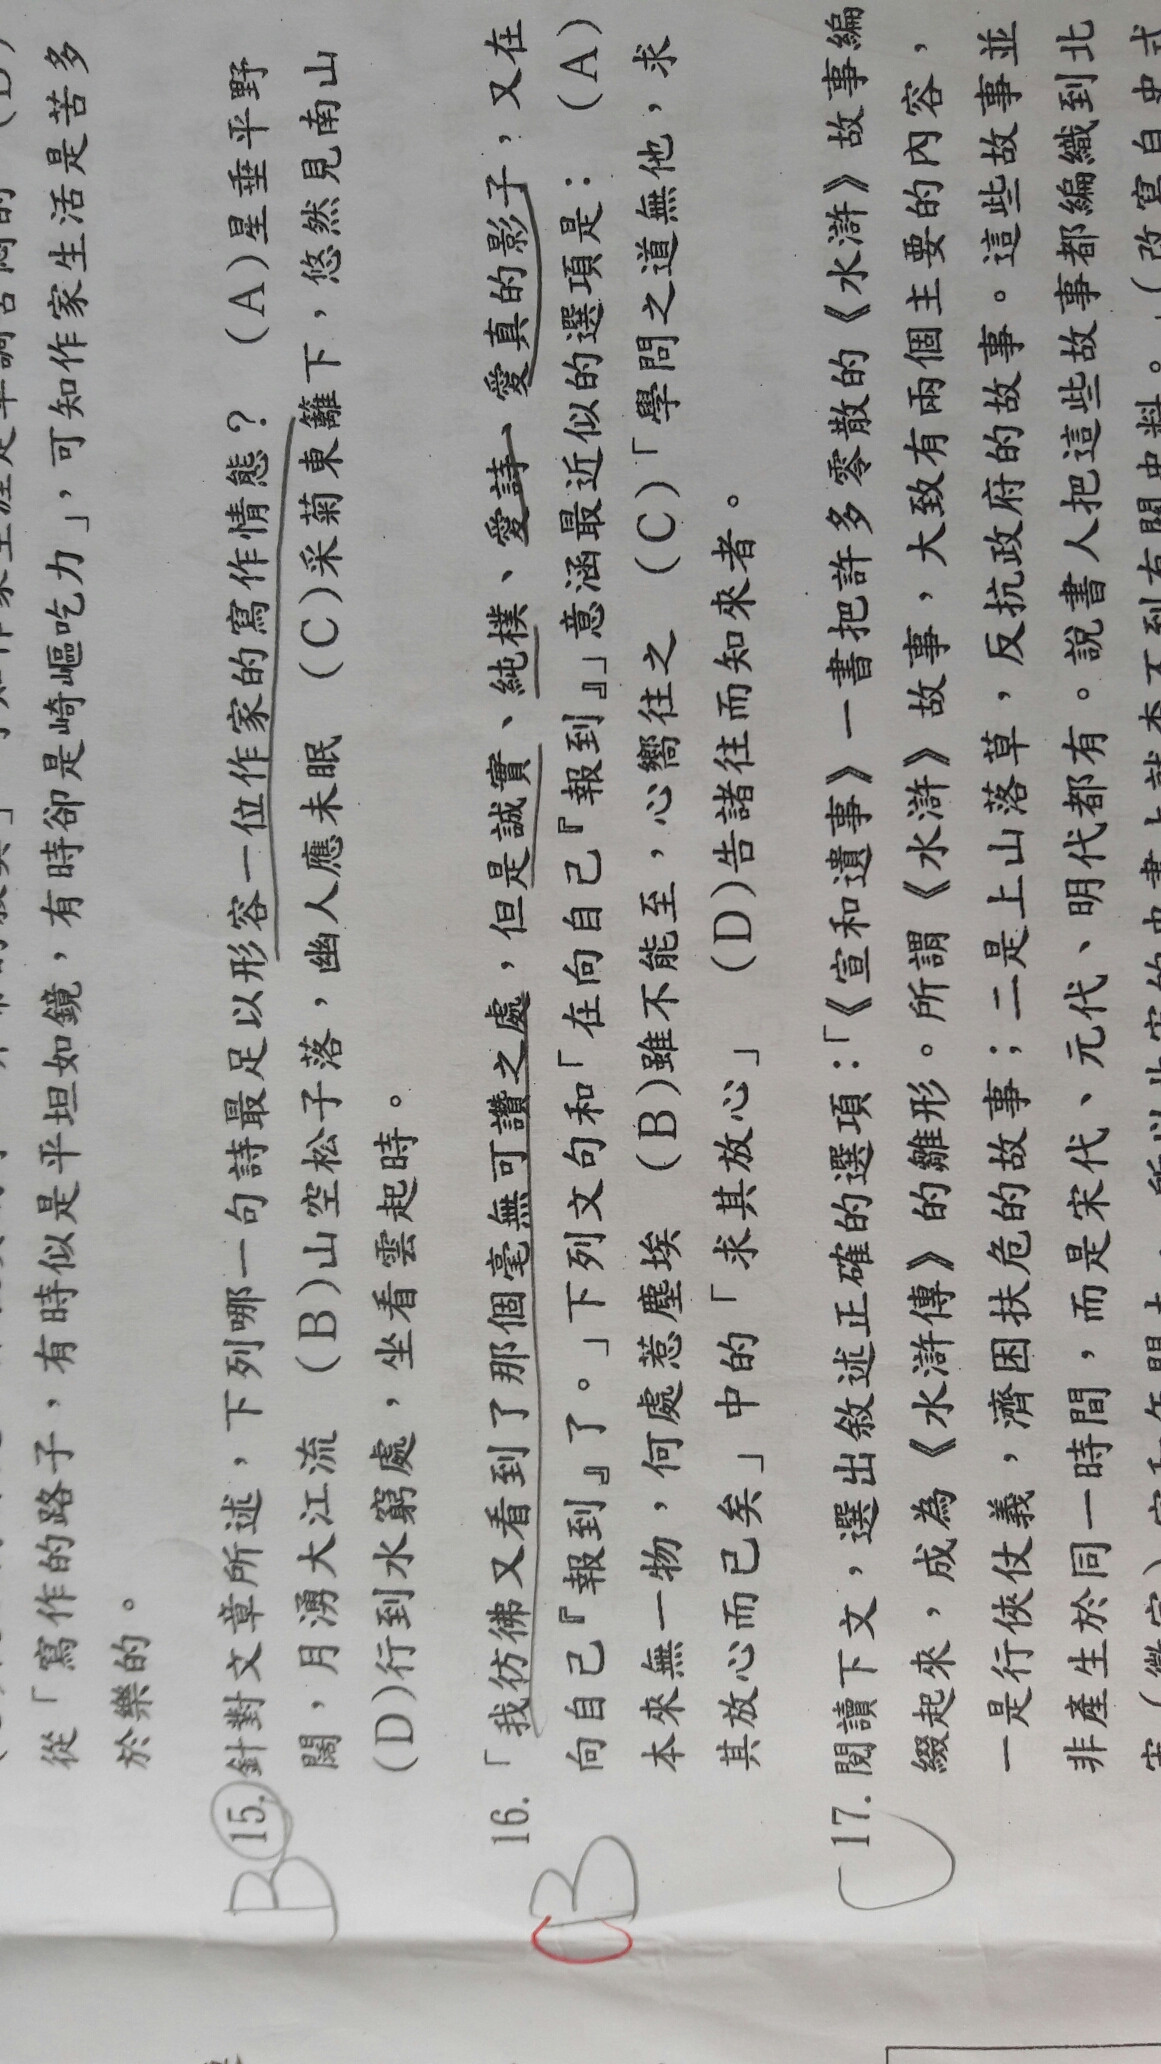 從「寫作的路子，有時似是平坦如鏡，有時卻是崎嶇吃力」，可知作家生活是苦多
於樂的。
B 15. 針對文章所述，下列哪一句詩最足以形容一位作家的寫作情態？ (A)星垂平野
闊，月湧大江流 (B)山空松子落，幽人應未眠 (C)采菊東籬下，悠然見南山
(D)行到水窮處，坐看雲起時。
16. 「我彷彿又看到了那個毫無可讚之處，但是誠實、純樸、愛詩、愛真的影子，又在
B 向自己『報到』了。」下列文句和「在向自己『報到』」意涵最近似的選項是： (A)
本來無一物，何處惹塵埃 (B)雖不能至，心嚮往之 (C)「學問之道無他，求
其放心而已矣」中的「求其放心」 (D)告諸往而知來者。
17. 閱讀下文，選出敘述正確的選項：「《宣和遺事》一書把許多零散的《水滸》故事編
綴起來，成為《水滸傳》的雛形。所謂《水滸》故事，大致有兩個主要的內容，
一是行俠仗義，濟困扶危的故事；二是上山落草，反抗政府的故事。這些故事並
非產生於同一時間，而是宋代、元代、明代都有。說書人把這些故事都編織到北